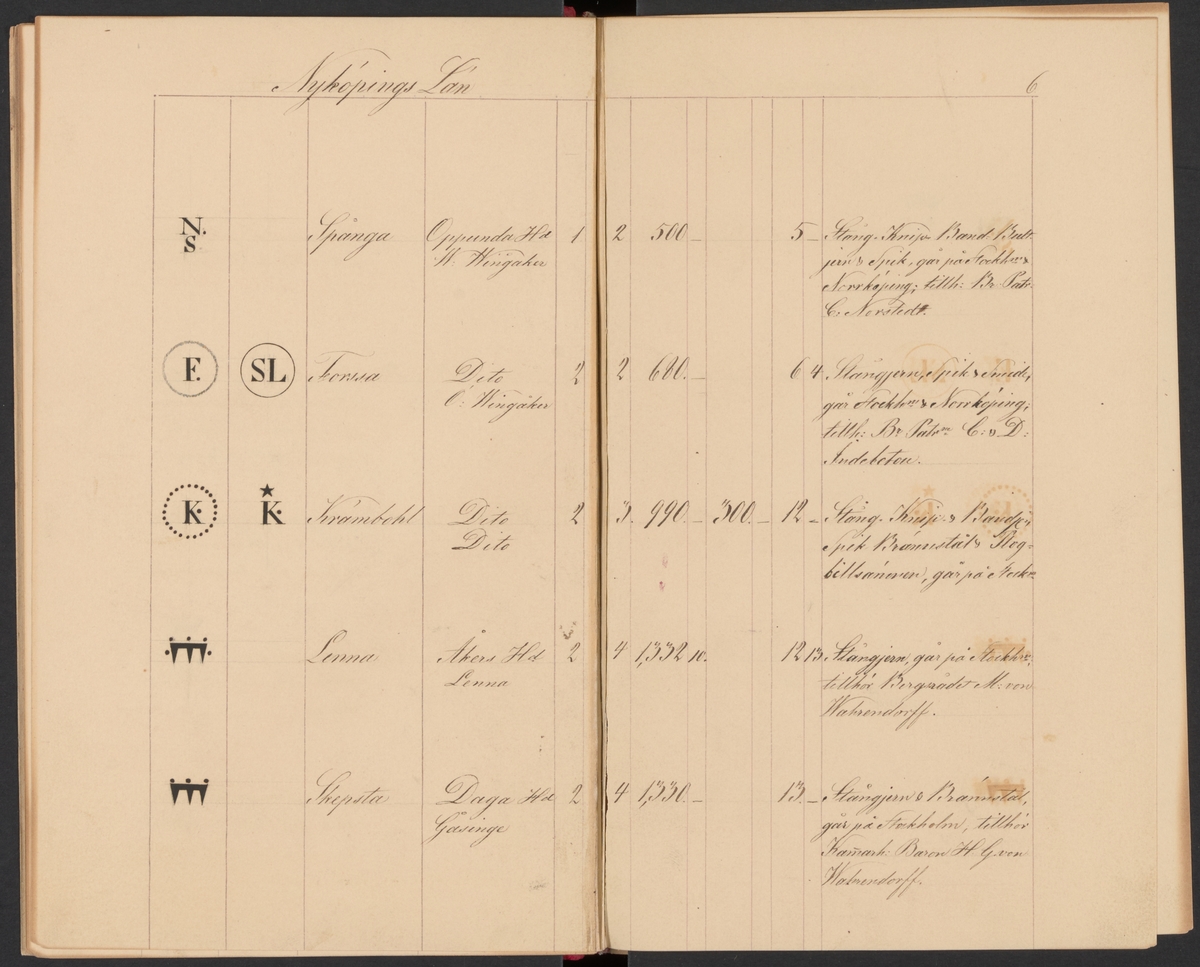 Nyköpings Län
6
N.
S.
Spånga
Oppunda Hd
W. Wingåker
1 2 500 – 5 –
Stång- Knip- Band- Bult-
jern & Spik, går på Stockhm &
Norrköping; tillh: Br Patr.
C. Norstedt.
F. SL
Forssa
Dito
Ö: Wingåker
2 2 680. – 6 4
Stångjern, Spik & Smide,
går Stockhm & Norrköping;
tillh: Br Patrn C: & D:
Indebetou.
K. K.
Kråmbohl
Dito
Dito
2 3. 990. – 300. – 12 –
Stång- Knip- & Bandjern
Spik Brännstål & Plog-
billsämnen, går på Stockm
Lenna
Åkers Hd
Lenna
2 4 1,332 10. 12 13
Stångjern, går på Stockhm:
tillhör Bergsrådet M: von
Wahrendorff.
Skepsta
Daga Hd
Gåsinge
2 4 1,330. – 13. –
Stångjern & Brännstål,
går på Stockholm, tillhör
Kam̄arh: Baron H. G. von
Wahrendorff.